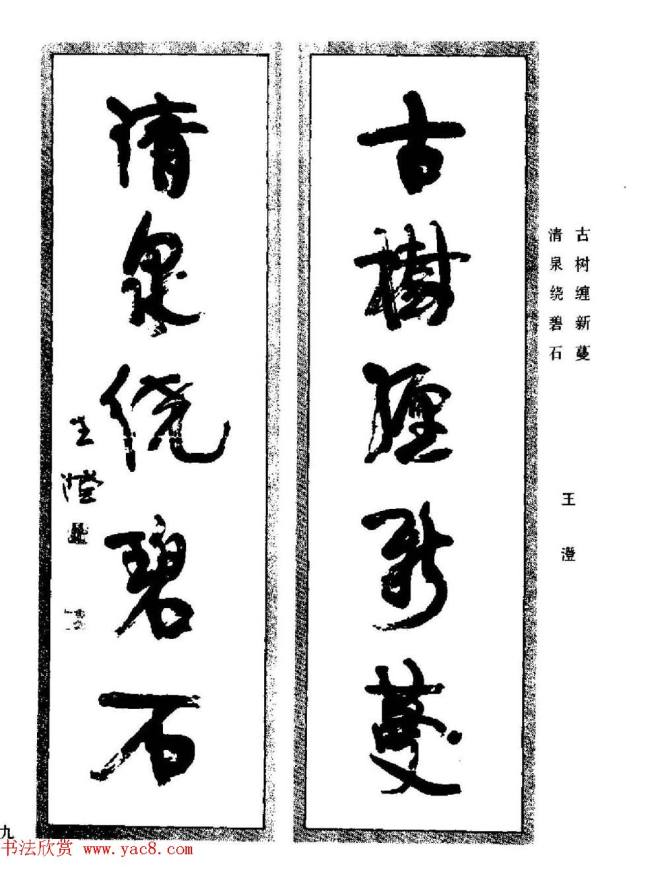 古樹纏新蔓
清泉绕碧石
王澄
古树缠新蔓
清泉绕碧石
王澄
九
书法欣赏 www.yac8.com